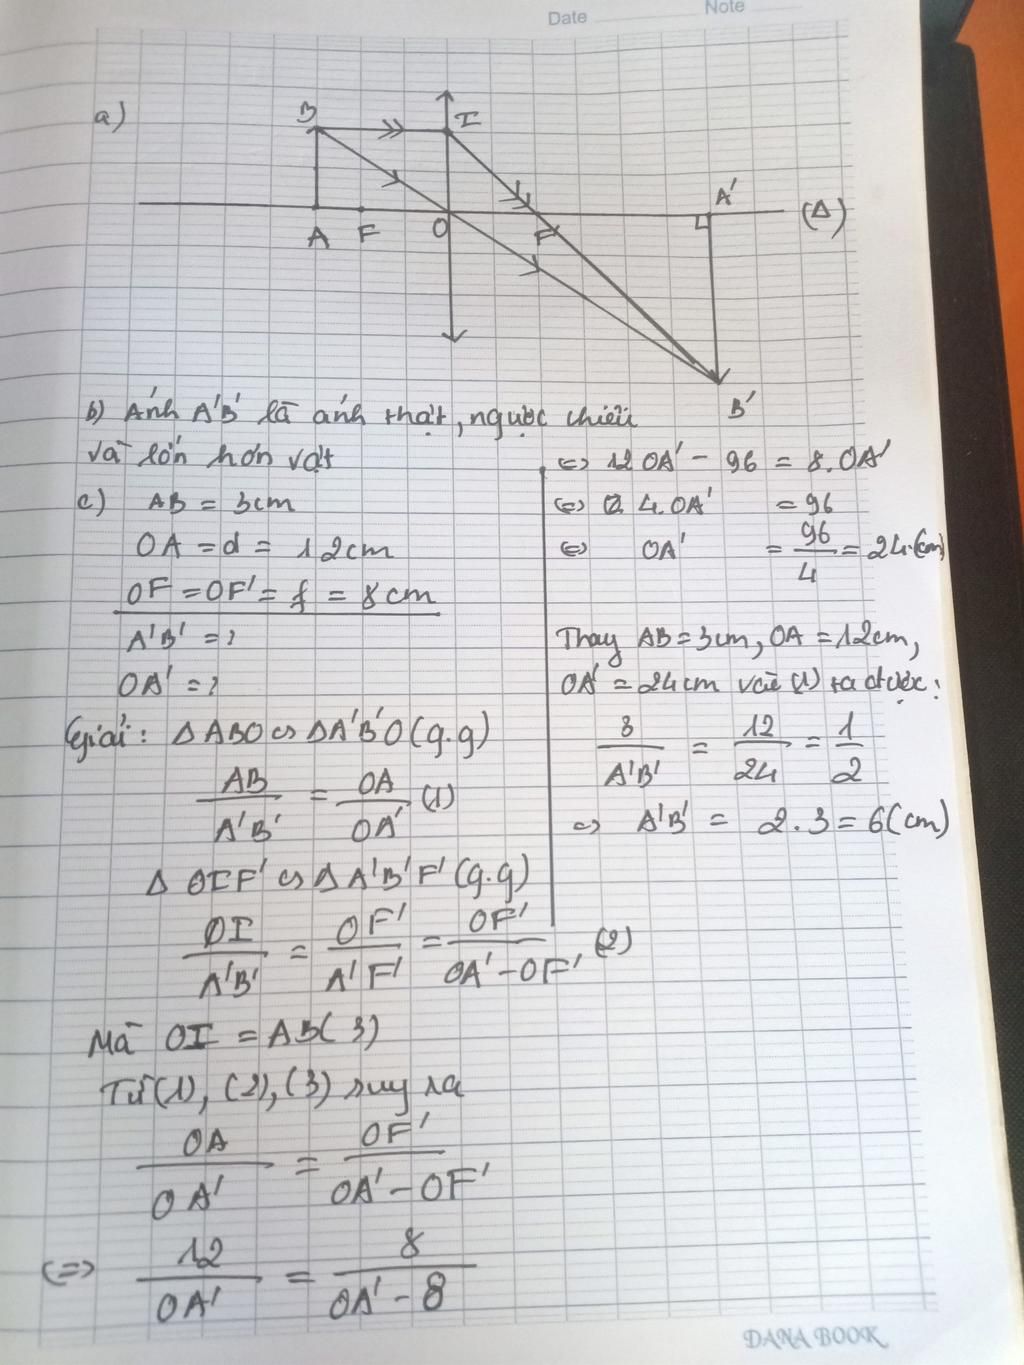 Date Note
a)
B I
A F O F' A' (Δ)
B'
b) Ảnh A'B' là ảnh thật, ngược chiều
và lớn hơn vật
c) AB = 3cm
OA = d = 12cm
OF = OF' = f = 8cm
A'B' = ?
OA' = ?
Giải: Δ ABO ∽ ΔA'B'O (g.g)
AB/A'B' = OA/OA' (1)
Δ OIF' ∽ Δ A'B'F' (g.g)
OI/A'B' = OF'/A'F' = OF'/OA'-OF' (2)
Mà OI = AB (3)
Từ (1), (2), (3) suy ra
OA/OA' = OF'/OA'-OF'
<=> 12/OA' = 8/OA'-8
<=> 12 OA' - 96 = 8.OA'
<=> 4.OA' = 96
<=> OA' = 96/4 = 24(cm)
Thay AB = 3cm, OA = 12cm,
OA' = 24cm vào (1) ta được:
3/A'B' = 12/24 = 1/2
=> A'B' = 2.3 = 6(cm)
DANA BOOK